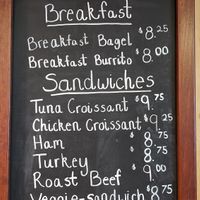 Breakfast
Breakfast Bagel $8.25
Breakfast Burrito $8.00
Sandwiches
Tuna Croissant $9.75
Chicken Croissant $9.25
Ham $8.75
Turkey $8.75
Roast Beef $9.00
Veggie-sandwich $8.75